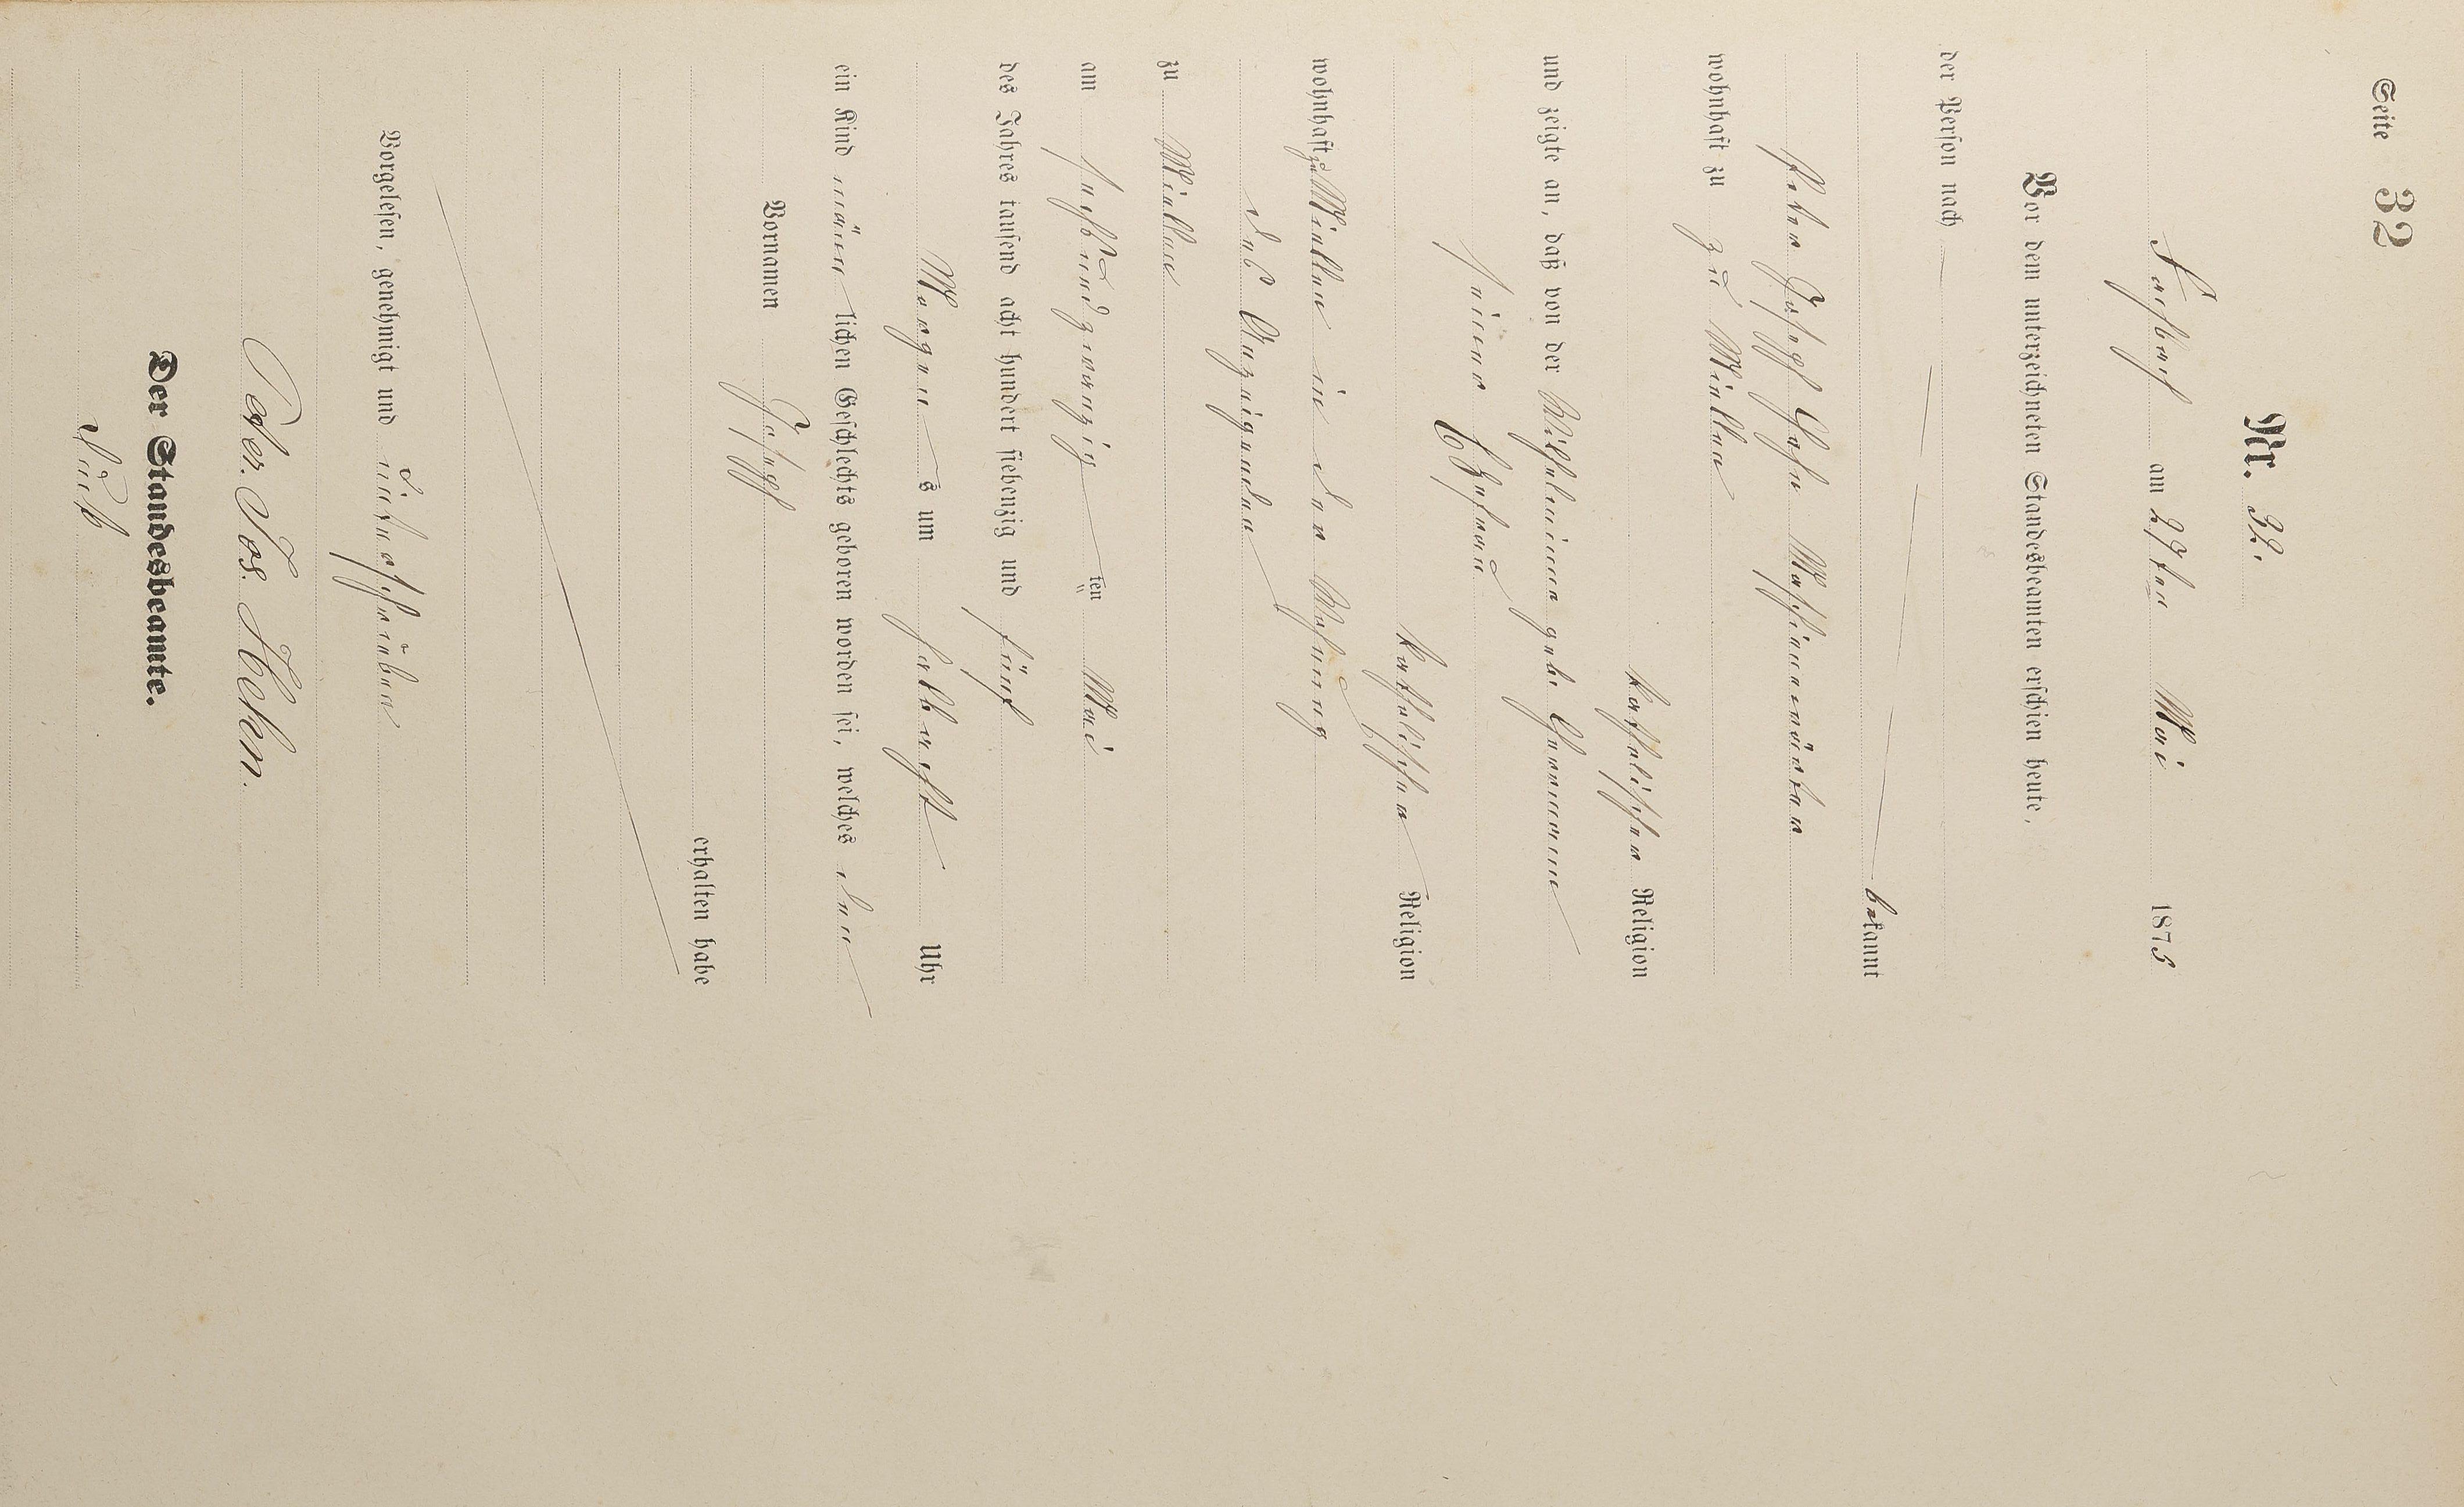 Seite 32
Nr. 32.
am 27ten Mai 1875
Vor dem unterzeichneten Standesbeamten erschien heute,
der Person nach
bekannt
Peter Joseph Hehn Maschinenwärter
wohnhaft zu zu Miellen
katholischer Religion
und zeigte an, daß von der Wilhelmine geb. Herrmann
seiner Ehefrau
katholischer Religion
wohnhaft zu Miellen in der Wohnung
des Anzeigenden
zu Miellen
am sechsundzwanzig ten Mai
des Jahres tausend acht hundert siebenzig und fünf
Morgen s um halb acht Uhr
ein Kind männ lichen Geschlechts geboren worden sei, welches den
Vornamen Joseph
erhalten habe
Vorgelesen, genehmigt und unterschrieben
Peter. Jos. Hehn.
Der Standesbeamte.